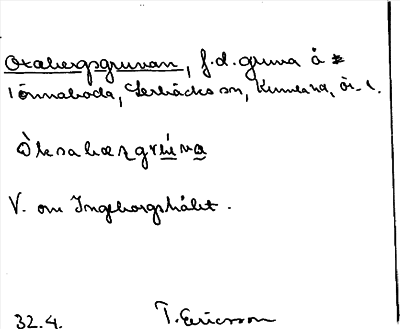 Oxabergsgruvan, f.d. gruva å
Tönnaboda, Lerbäcks sn, Kumla hd, Ör. l.
Òksabærgrùva
V. om Ingeborgshålet.
32.4. T. Ericsson